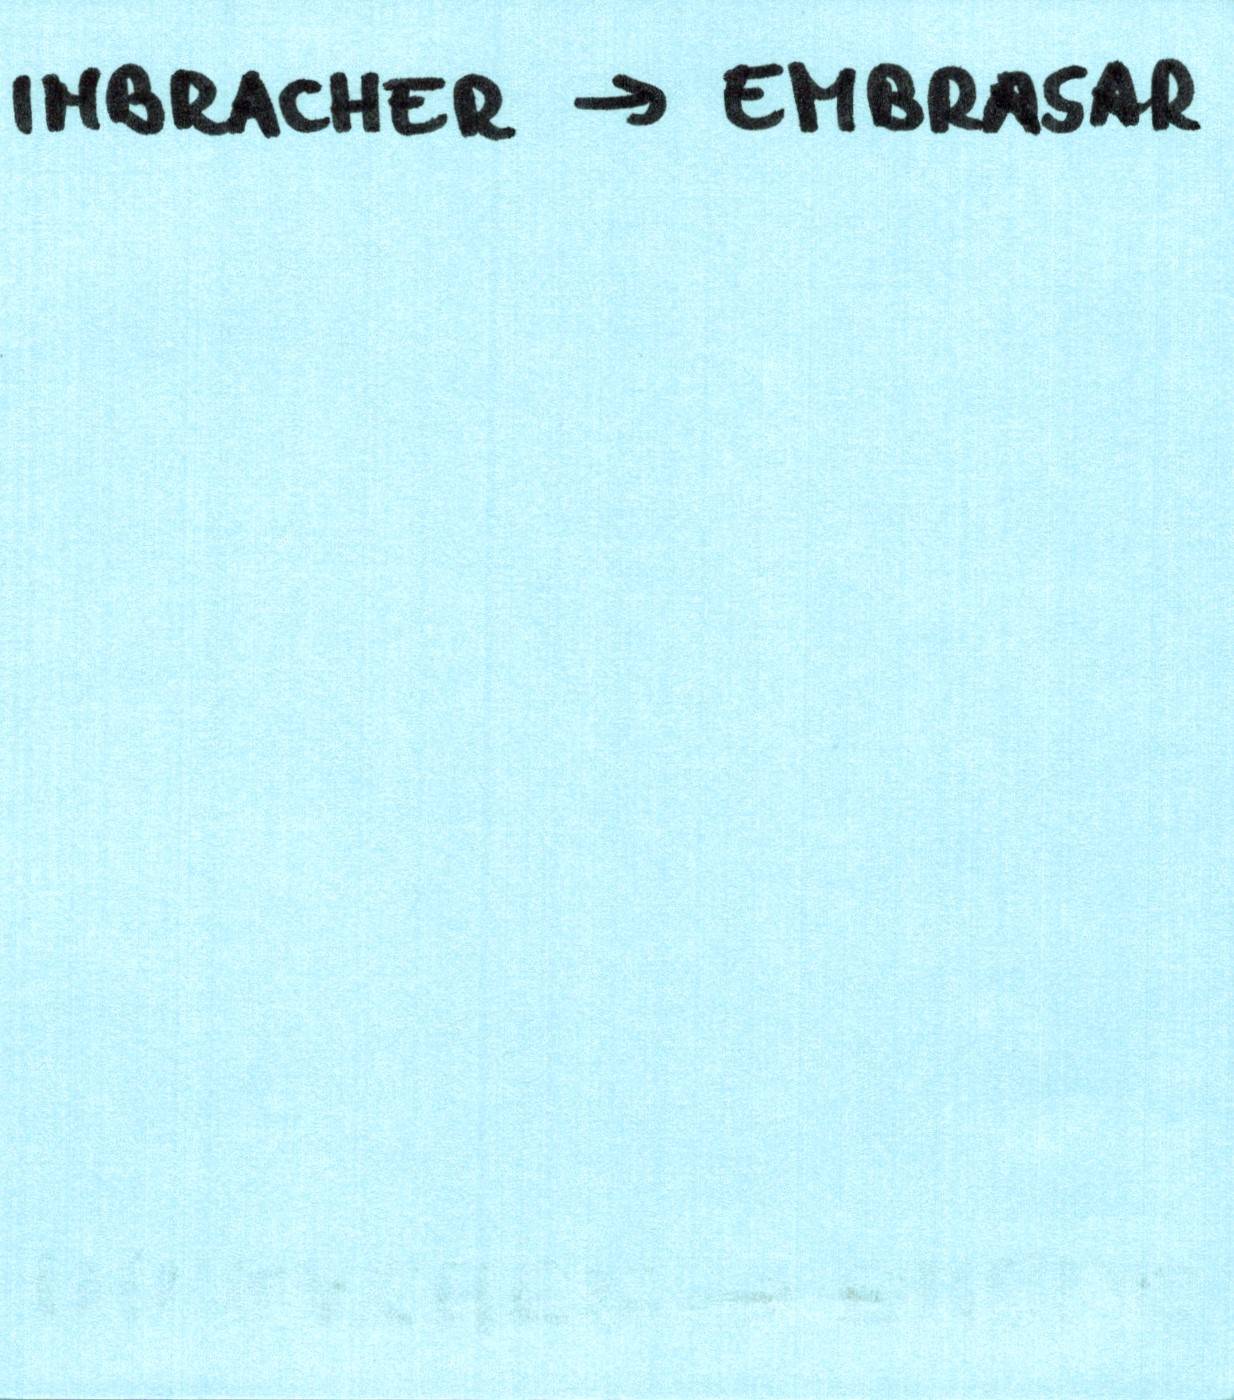 IMBRACHER → EMBRASAR